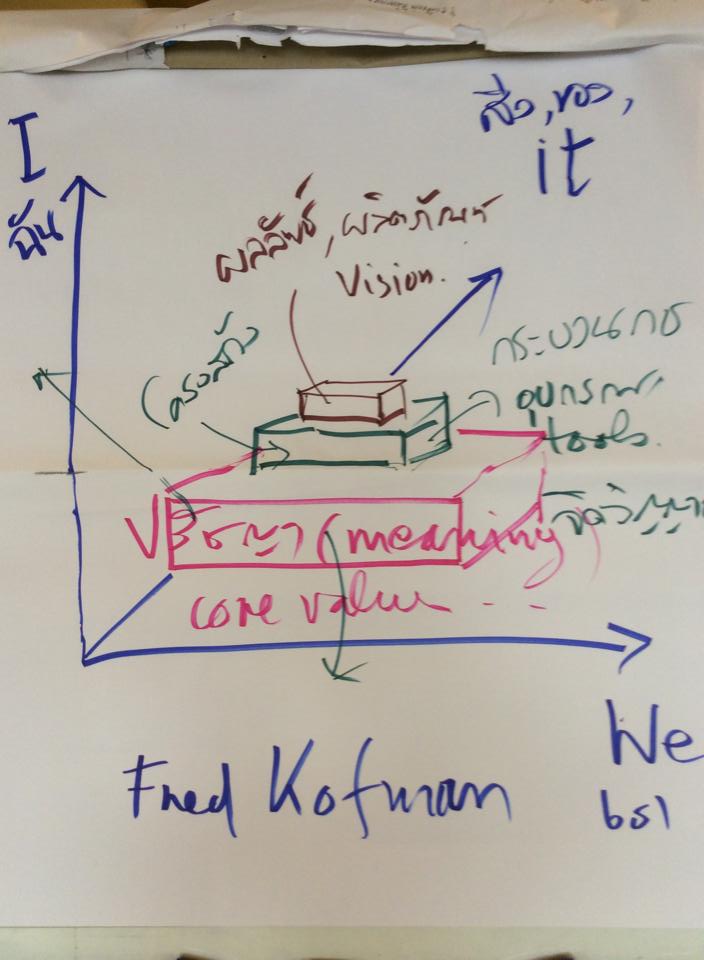 I
ฉัน
สิ่ง, ของ,
it
ผลลัพธ์, ผลิตภัณฑ์
Vision.
โครงสร้าง
กระบวนการ
อุปกรณ์
tools.
จิตวิญญา
ปรัชญา (meaning)
core value ...
We
เรา
Fred Kofman